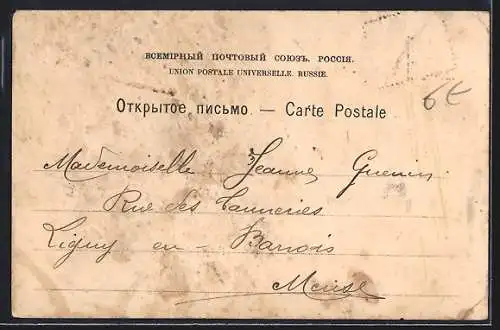 ВСЕМІРНЫЙ ПОЧТОВЫЙ СОЮЗЪ. РОССІЯ.
UNION POSTALE UNIVERSELLE. RUSSIE.
Открытое письмо. — Carte Postale
6€
Mademoiselle Jeanne Guenin
Rue des Tanneries
Ligny en - Barrois
Meuse